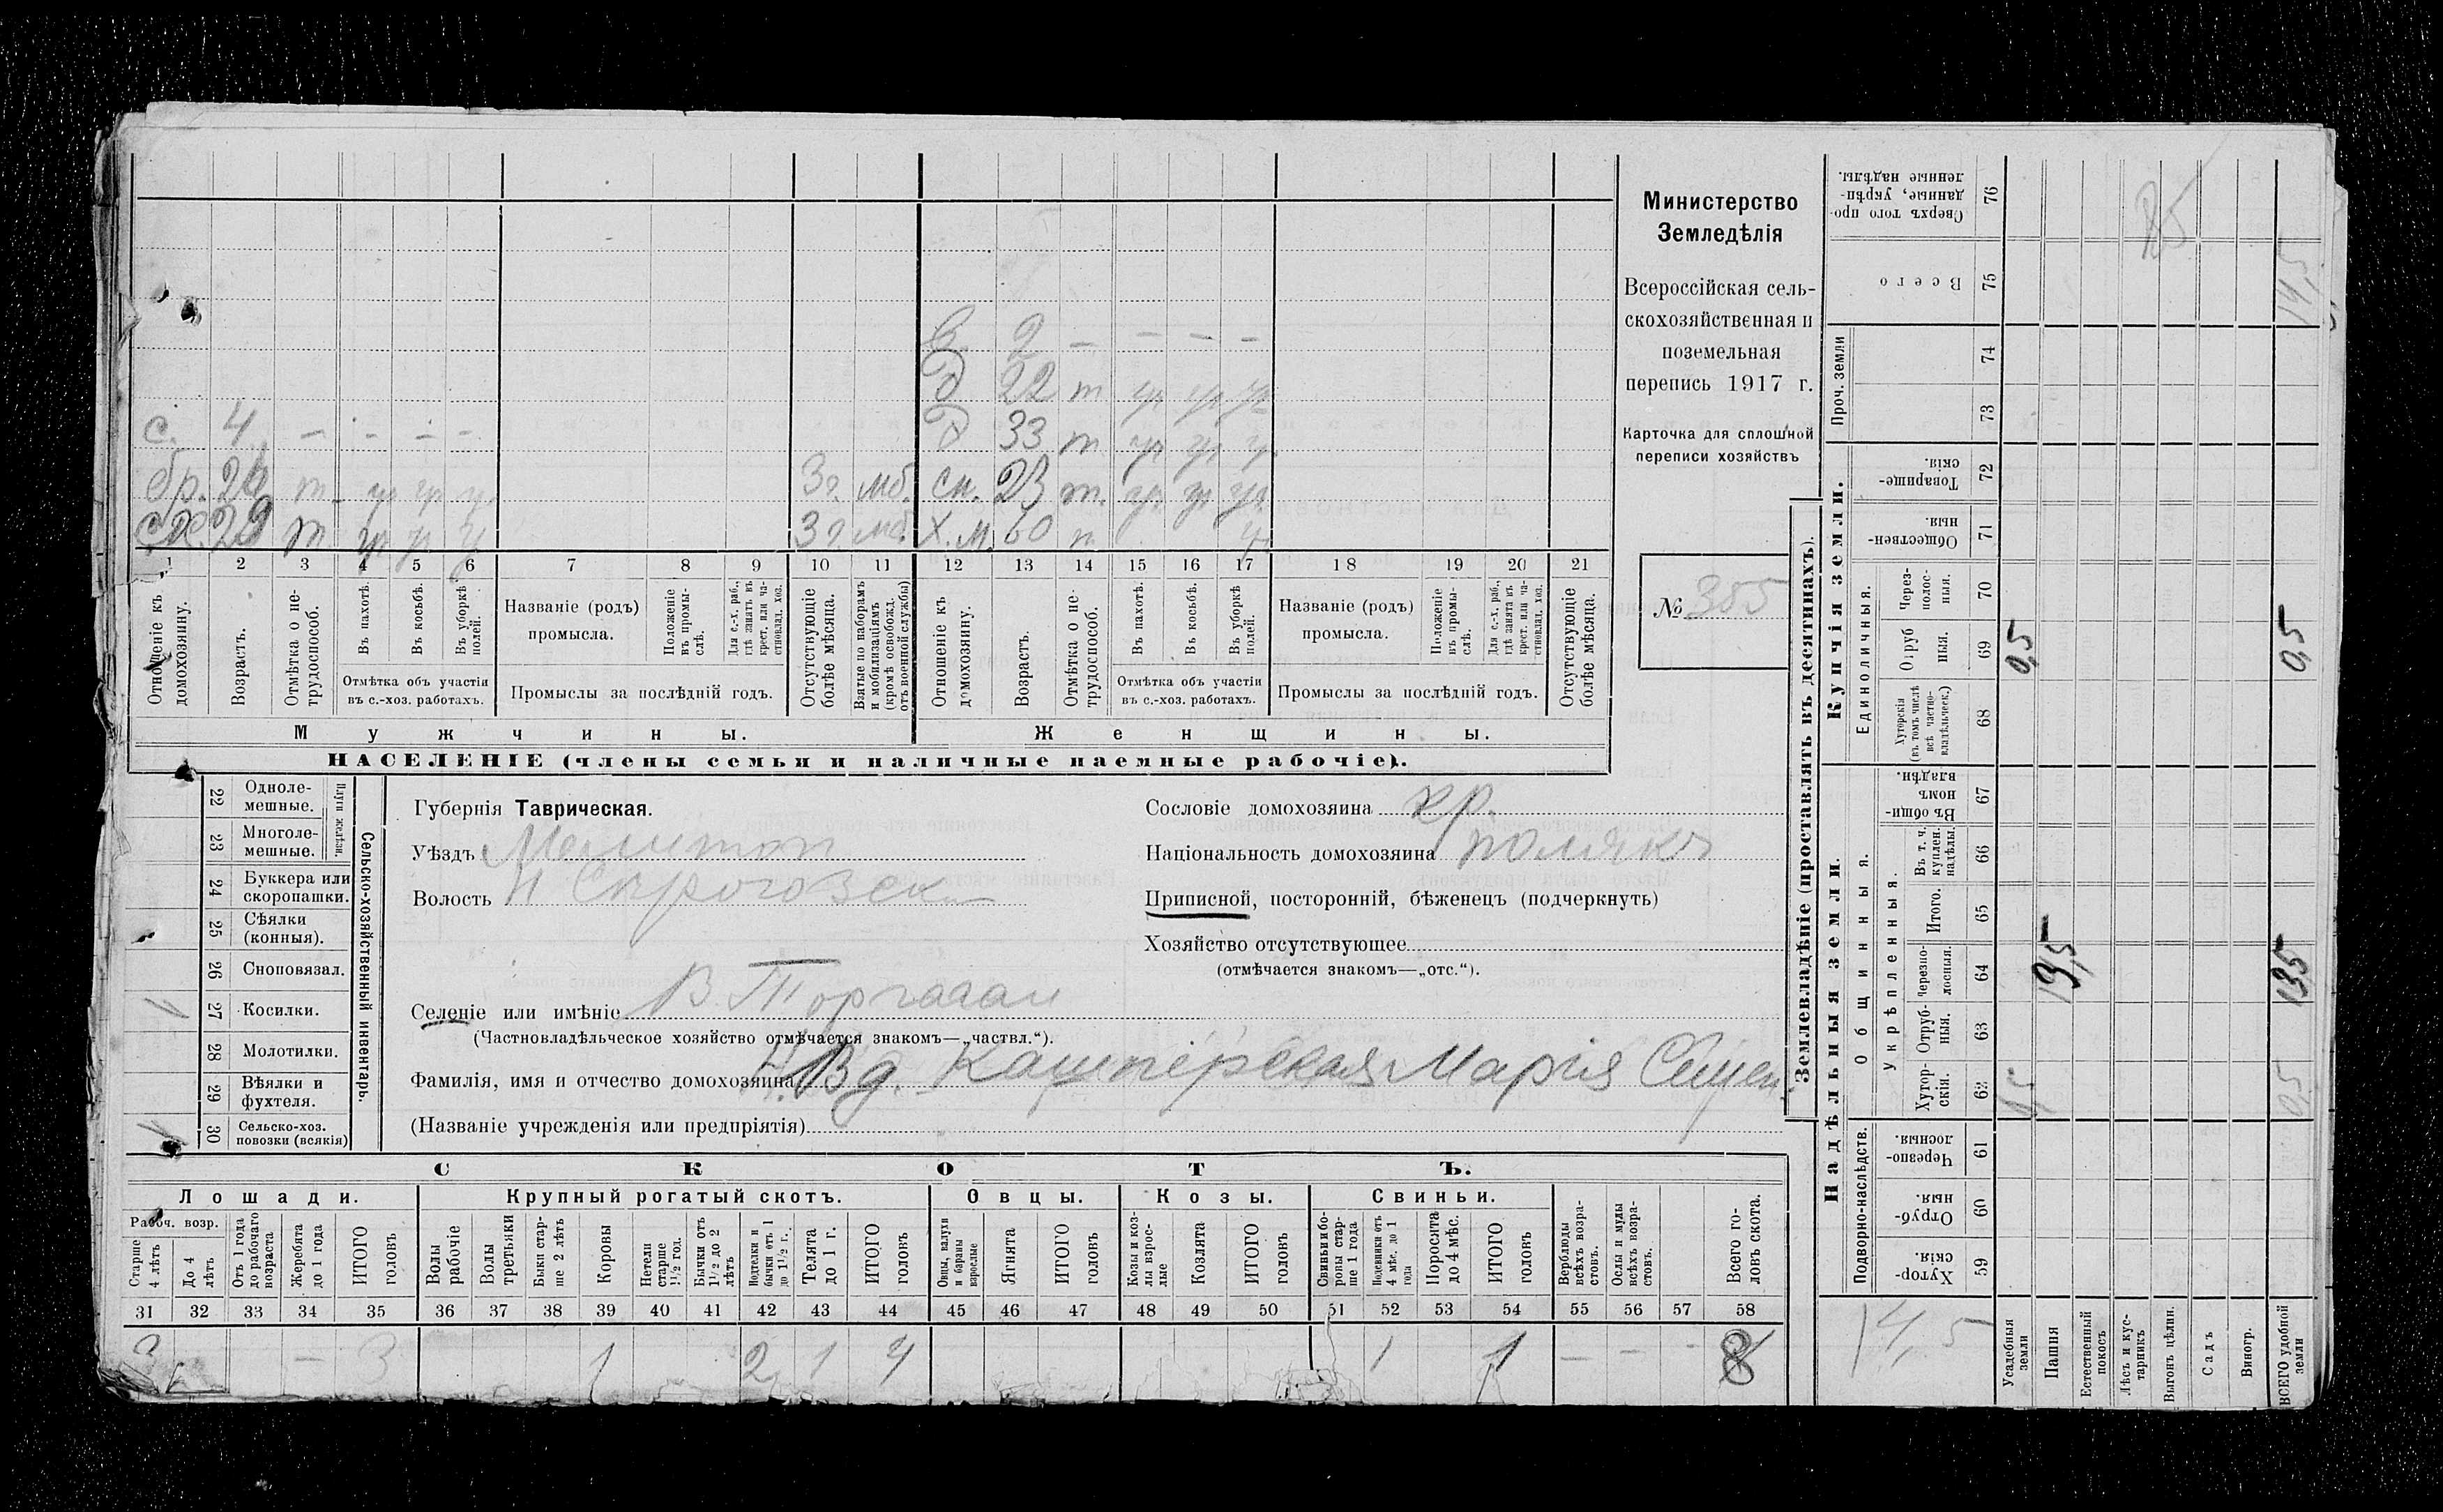 Министерство
Земледѣлія
Всероссійская сель-
скохозяйственная и
поземельная
перепись 1917 г.
Карточка для сплошной
переписи хозяйствъ
№ 355
2 — — — —
д 22 т
с. 4 — — — —
д 33 т
бр. 24 т 3 г. мб.
сн. 23 т.
29 т 3 г. мб.
Х. м. 60 т
1 2 3 4 5 6 7 8 9 10 11 12 13 14 15 16 17 18 19 20 21
Отношеніе къ домохозяину.
Возрастъ.
Отмѣтка о не-трудоспособ.
Въ пахотѣ.
Въ косьбѣ.
Въ уборкѣ полей.
Отмѣтка объ участіи въ с.-хоз. работахъ.
Названіе (родъ) промысла.
Положеніе въ промы-слѣ.
Для с.-х. раб., гдѣ занятъ въ крест. или ча-стновлад. хоз.
Промыслы за послѣдній годъ.
Отсутствующіе болѣе мѣсяца.
Взятые по наборамъ и мобилизаціямъ (кромѣ освобожд. отъ военной службы)
Отношеніе къ домохозяину.
Возрастъ.
Отмѣтка о не-трудоспособ.
Въ пахотѣ.
Въ косьбѣ.
Въ уборкѣ полей.
Отмѣтка объ участіи въ с.-хоз. работахъ.
Названіе (родъ) промысла.
Положеніе въ промы-слѣ.
Для с.-х. раб., гдѣ занята въ крест. или ча-стновлад. хоз.
Промыслы за послѣдній годъ.
Отсутствующіе болѣе мѣсяца.
Мужчины.
Женщины.
НАСЕЛЕНІЕ (члены семьи и наличные наемные рабочіе).
22 Одноле-мешные.
23 Многоле-мешные.
Плуги желѣзн.
24 Буккера или скоропашки.
25 Сѣялки (конныя).
26 Сноповязал.
27 Косилки. 1
28 Молотилки.
29 Вѣялки и фухтеля.
30 Сельско-хоз. повозки (всякія)
Сельско-хозяйственный инвентарь.
Губернія Таврическая.
Уѣздъ Мелитоп
Волость Н Сѣрогозск
Селеніе или имѣніе В. Торгааи
(Частновладѣльческое хозяйство отмѣчается знакомъ—„частвл.“).
Фамилія, имя и отчество домохозяина Вд. Кашперская Марія Семен.
(Названіе учрежденія или предпріятія)
Сословіе домохозяина кр.
Національность домохозяина полякъ
Приписной, посторонній, бѣженецъ (подчеркнуть)
Хозяйство отсутствующее
(отмѣчается знакомъ—„отс.“).
СКОТЪ.
Лошади.
Крупный рогатый скотъ.
Овцы.
Козы.
Свиньи.
Рабоч. возр.
Старше 4 лѣтъ
До 4 лѣтъ
Отъ 1 года до рабочаго возраста
Жеребята до 1 года
ИТОГО головъ
Волы рабочіе
Волы третьяки
Быки стар-ше 2 лѣтъ
Коровы
Нетели старше 1½ год.
Бычки отъ 1½ до 2 лѣтъ
Подтелки и бычки отъ 1 до 1½ г.
Телята до 1 г.
ИТОГО головъ
Овцы, валухи и бараны взрослые
Ягнята
ИТОГО головъ
Козы и коз-лы взрос-лые
Козлята
ИТОГО головъ
Свиньи и бо-ровы стар-ше 1 года
Подсвинки отъ 4 мѣс. до 1 года
Поросята до 4 мѣс.
ИТОГО головъ
Верблюды всѣхъ возра-стовъ.
Ослы и мулы всѣхъ возра-стовъ.
Всего го-ловъ скота.
31 32 33 34 35 36 37 38 39 40 41 42 43 44 45 46 47 48 49 50 51 52 53 54 55 56 57 58
— 3 1 2 1 4 1 1 — — - 8
Землевладѣніе (проставлять въ десятинахъ).
Купчія земли.
Надѣльныя земли.
Проч. земли
Единоличныя.
Общинныя.
Укрѣпленныя.
Подворно-наслѣдств.
Сверхъ того про-данные, укрѣп-ленные надѣлы. 76
Всего 75
74
73
Товарище-скія. 72
Обществен-ныя. 71
Через-полос-ныя. 70
Отруб ныя. 69
Хуторскія (въ томъ числѣ всѣ частно-владѣльческ.) 68
Въ общи-номъ владѣн. 67
Въ т. ч. куплен. надѣлы. 66
Итого. 65
Черезпо-лосныя. 64
Отруб-ныя. 63
Хутор-скія. 62
Черезпо-лосныя. 61
Отруб-ныя. 60
Хутор-скія. 59
Усадебныя земли
Пашня
Естественный покосъ
Лѣсъ и кус-тарникъ
Выгонъ цѣлин.
Садъ
Виногр.
ВСЕГО удобной земли
0,5
13,5
14,5
0,5
13,5
0,5
14,5